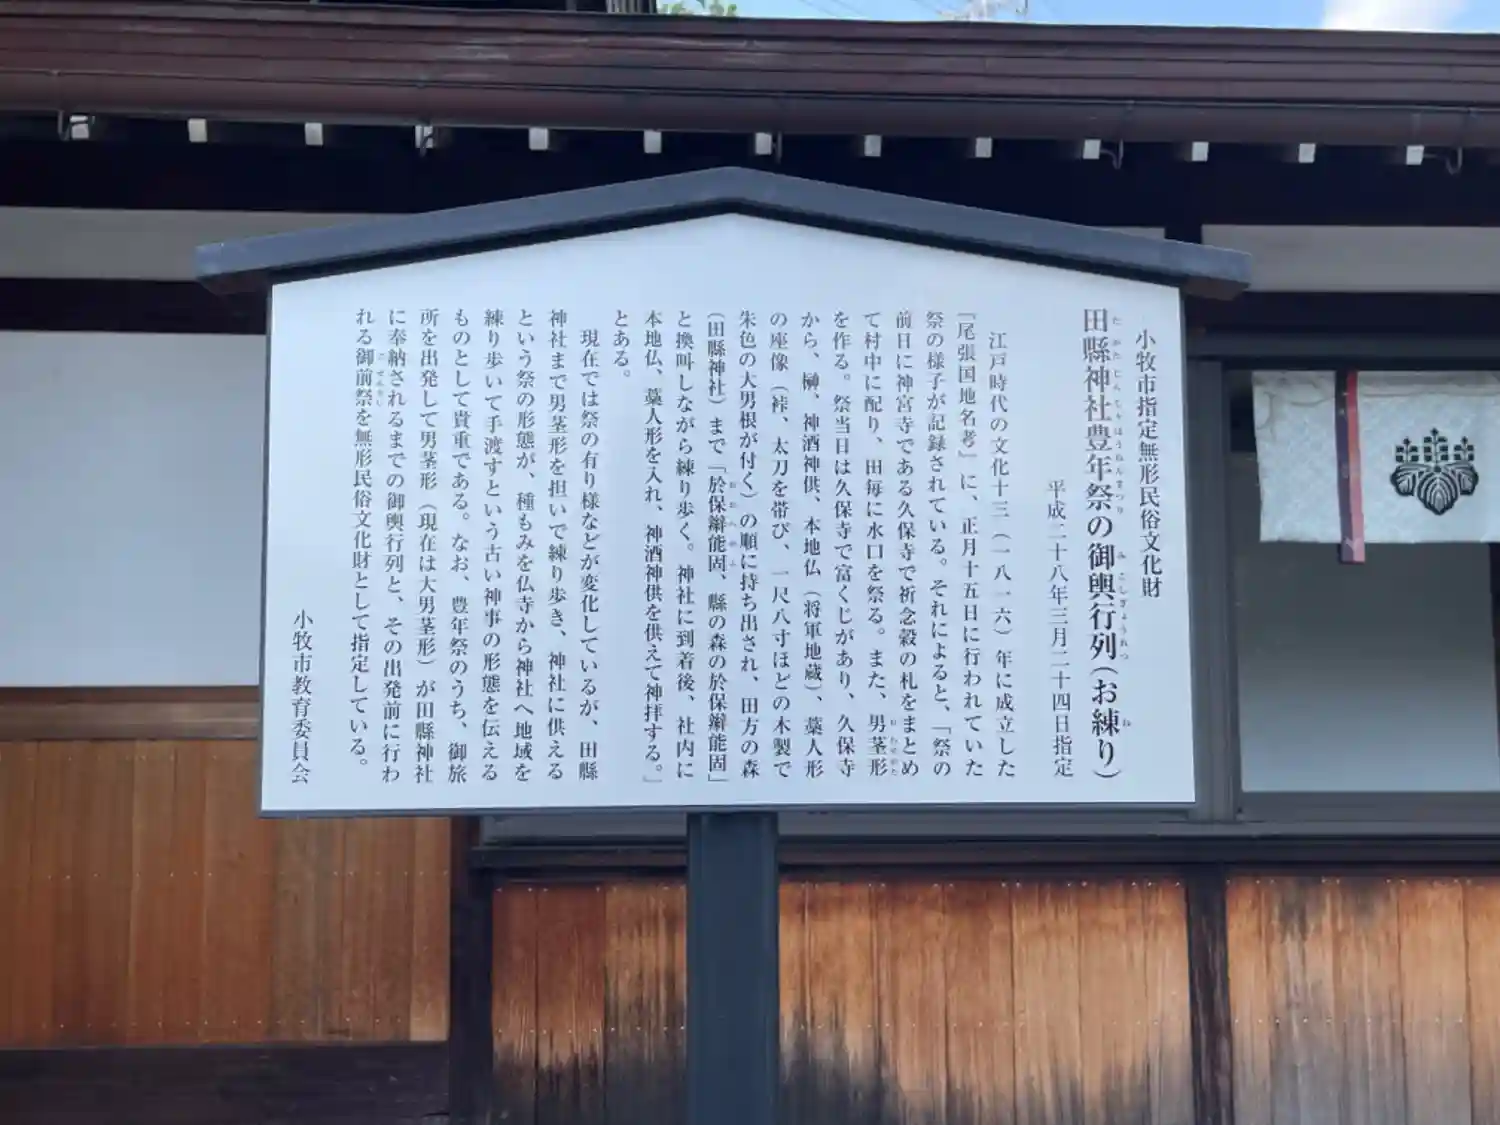 小牧市指定無形民俗文化財
田縣神社豊年祭の御輿行列(お練り)
たがたじんじゃほうねんまつり みこしぎょうれつ ね
平成二十八年三月二十四日指定
江戸時代の文化十三(一八一六)年に成立した
『尾張国地名考』に、正月十五日に行われていた
祭の様子が記録されている。それによると、「祭の
前日に神宮寺である久保寺で祈念穀の札をまとめ
て村中に配り、田毎に水口を祭る。また、男茎形
おわせがた
を作る。祭当日は久保寺で富くじがあり、久保寺
から、榊、神酒神供、本地仏(将軍地蔵)、藁人形
の座像(裃、太刀を帯び、一尺八寸ほどの木製で
朱色の大男根が付く)の順に持ち出され、田方の森
(田縣神社)まで「於保辯能固、縣の森の於保辯能固」
おおへのこ
と換叫しながら練り歩く。神社に到着後、社内に
本地仏、藁人形を入れ、神酒神供を供えて神拝する。」
とある。
現在では祭の有り様などが変化しているが、田縣
神社まで男茎形を担いで練り歩き、神社に供える
という祭の形態が、種もみを仏寺から神社へ地域を
練り歩いて手渡すという古い神事の形態を伝える
ものとして貴重である。なお、豊年祭のうち、御旅
所を出発して男茎形(現在は大男茎形)が田縣神社
に奉納されるまでの御輿行列と、その出発前に行わ
れる御前祭を無形民俗文化財として指定している。
ごぜんさい
小牧市教育委員会